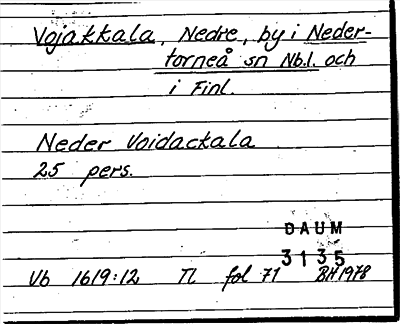 Vojakkala, Nedre, by i Neder-
torneå sn Nb.l. och
i Finl.
Neder Voidackala
25 pers.
DAUM
3135
Vb 1619:12 Tl fol 71 BH 1978